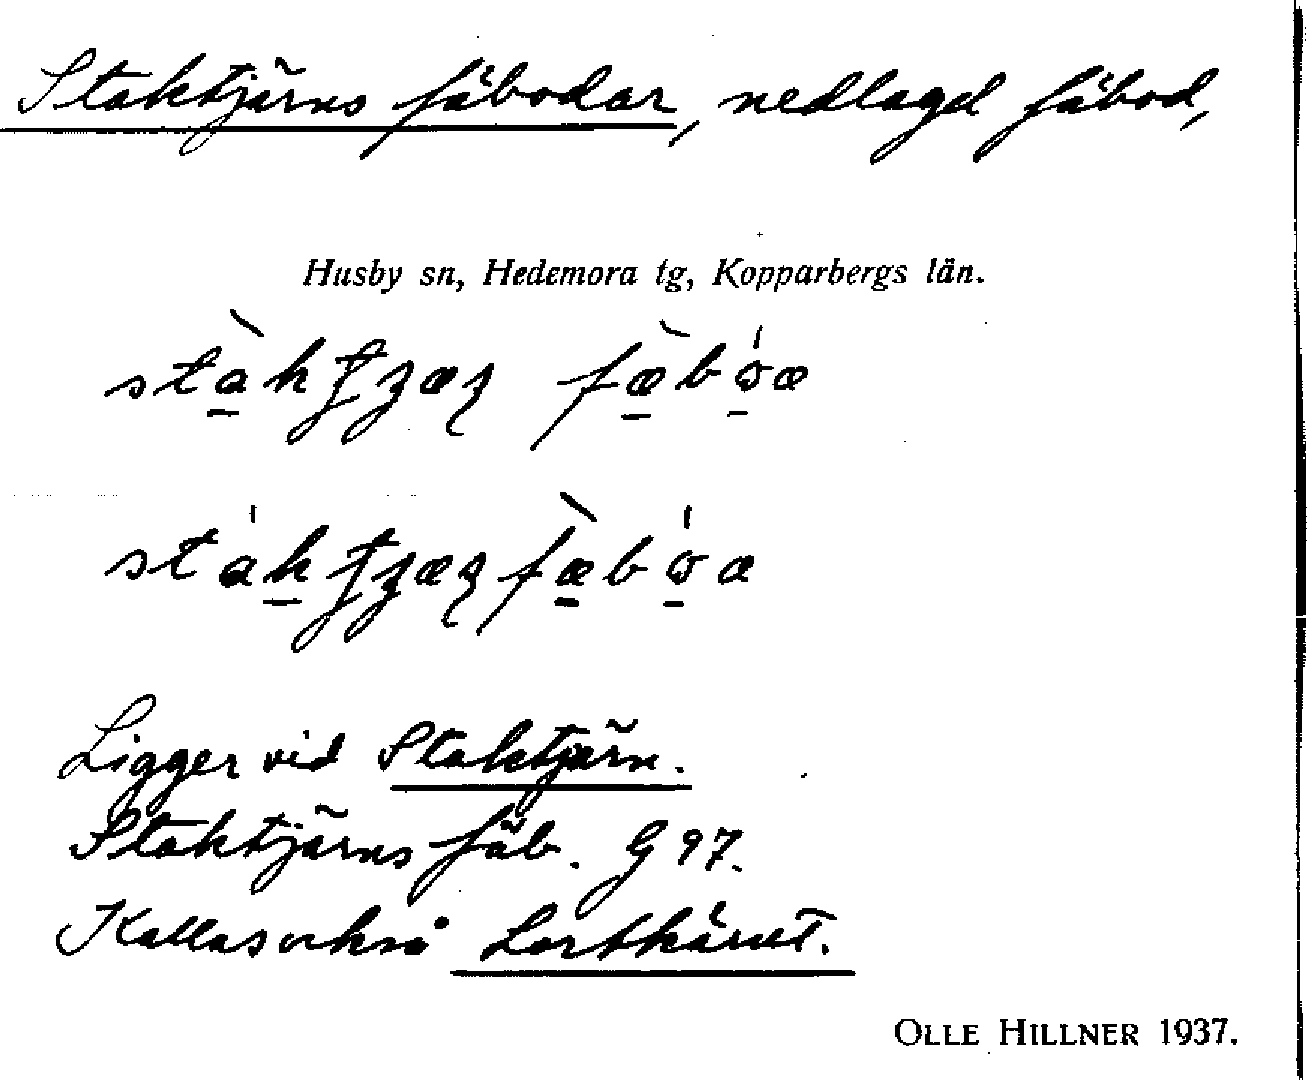 Staktjärns fäbodar, nedlagd fäbod,
Husby sn, Hedemora tg, Kopparbergs län.
Ligger vid Staktjärn.
Staktjärns fäb. G 97.
Kallas också Lortkärnet.
OLLE HILLNER 1937.